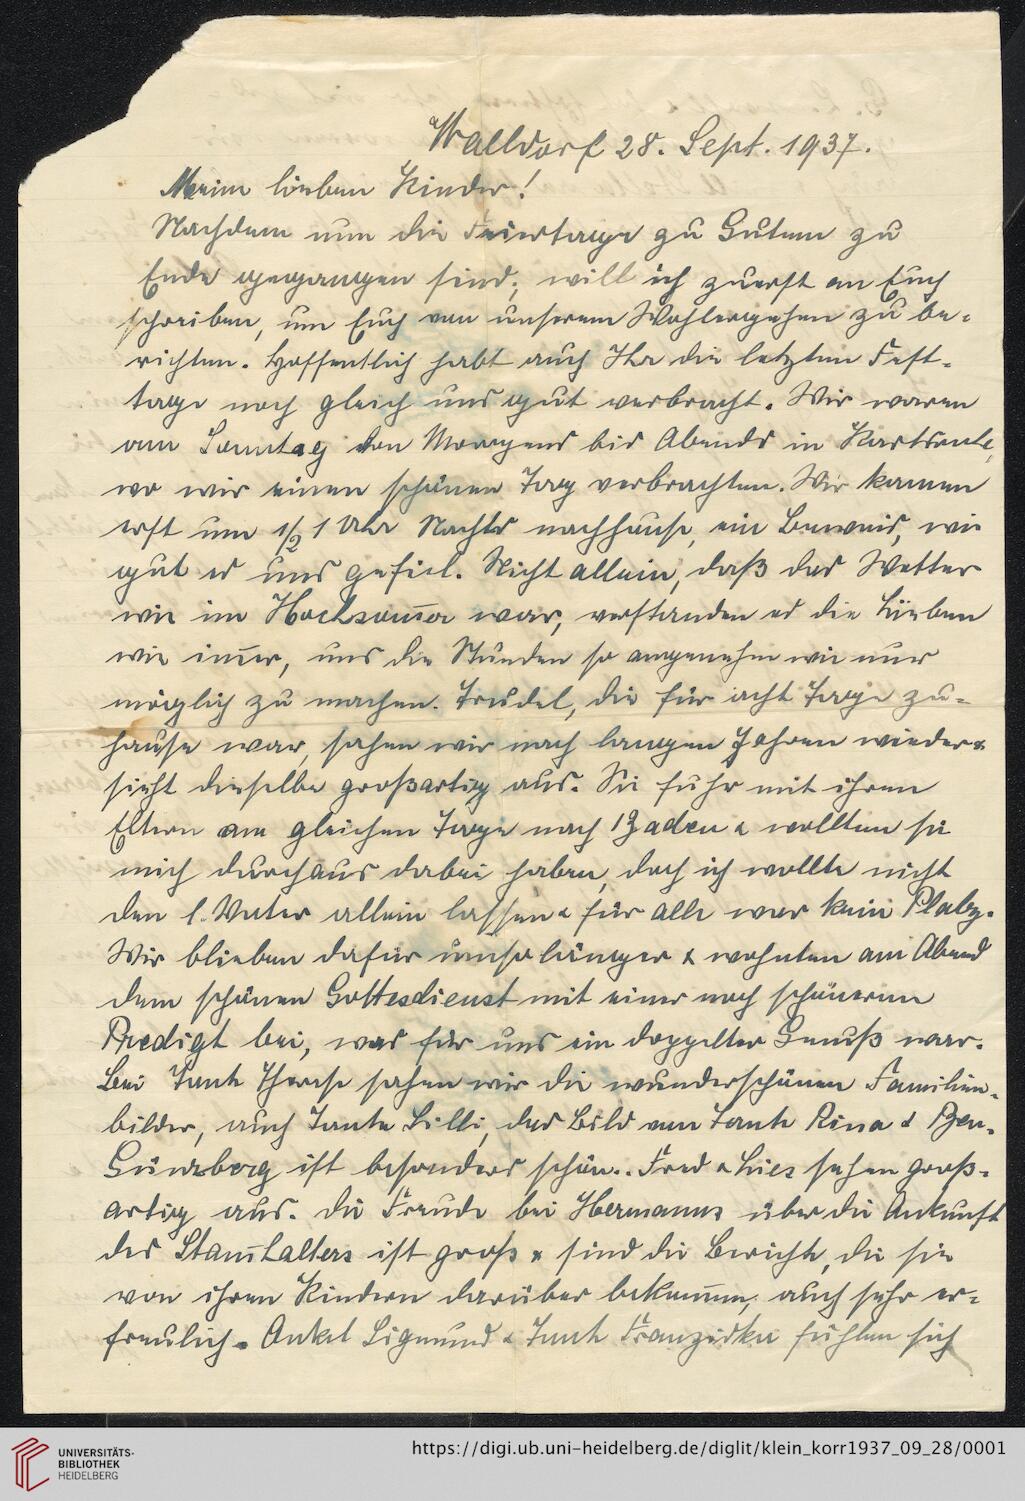 Walldorf 28. Sept. 1937.
Meine lieben Kinder!
Nachdem nun die Feiertage zu Gutem zu
Ende gegangen sind, will ich zuerst an Euch
schreiben, um Euch von unserem Wohlergehen zu be-
richten. Hoffentlich habt auch Ihr die letzten Fest-
tage noch gleich uns gut verbracht. Wir waren
am Sonntag von Morgens bis Abends in Karlsruhe,
wo wir einen schönen Tag verbrachten. Wir kamen
erst um 1/2 1 Uhr Nachts nachhause, ein Beweis, wie
gut es uns gefiel. Nicht allein, daß das Wetter
wie im Hochsom̅er war, verstanden es die Lieben
wie im̅er, uns die Stunden so angenehm wie nur
möglich zu machen. Trudel, die für acht Tage zu-
hause war, sahen wir nach langen Jahren wieder &
sieht dieselbe großartig aus. Sie fuhr mit ihren
Eltern am gleichen Tage nach Baden & wollten sie
mich durchaus dabei haben, doch ich wollte nicht
den l. Vater allein lassen & für alle war kein Platz.
Wir blieben dafür umso länger & wohnten am Abend
dem schönen Gottesdienst mit einer noch schöneren
Predigt bei, was für uns ein doppelter Genuß war.
Bei Tante Therese sahen wir die wunderschönen Familien-
bilder, auch Tante Lilli, das Bild von Tante Rina &
Günzberg ist besonders schön. Fred & Lies sehen groß-
artig aus. Die Freude bei Hermanns über die Ankunft
des Stam̅halters ist groß & sind die Berichte, die sie
von ihren Kindern darüber bekommen, auch sehr er-
freulich. Onkel Sigmund & Tante Franziska fühlen sich
UNIVERSITÄTS-
BIBLIOTHEK
HEIDELBERG
https://digi.ub.uni-heidelberg.de/diglit/klein_korr1937_09_28/0001